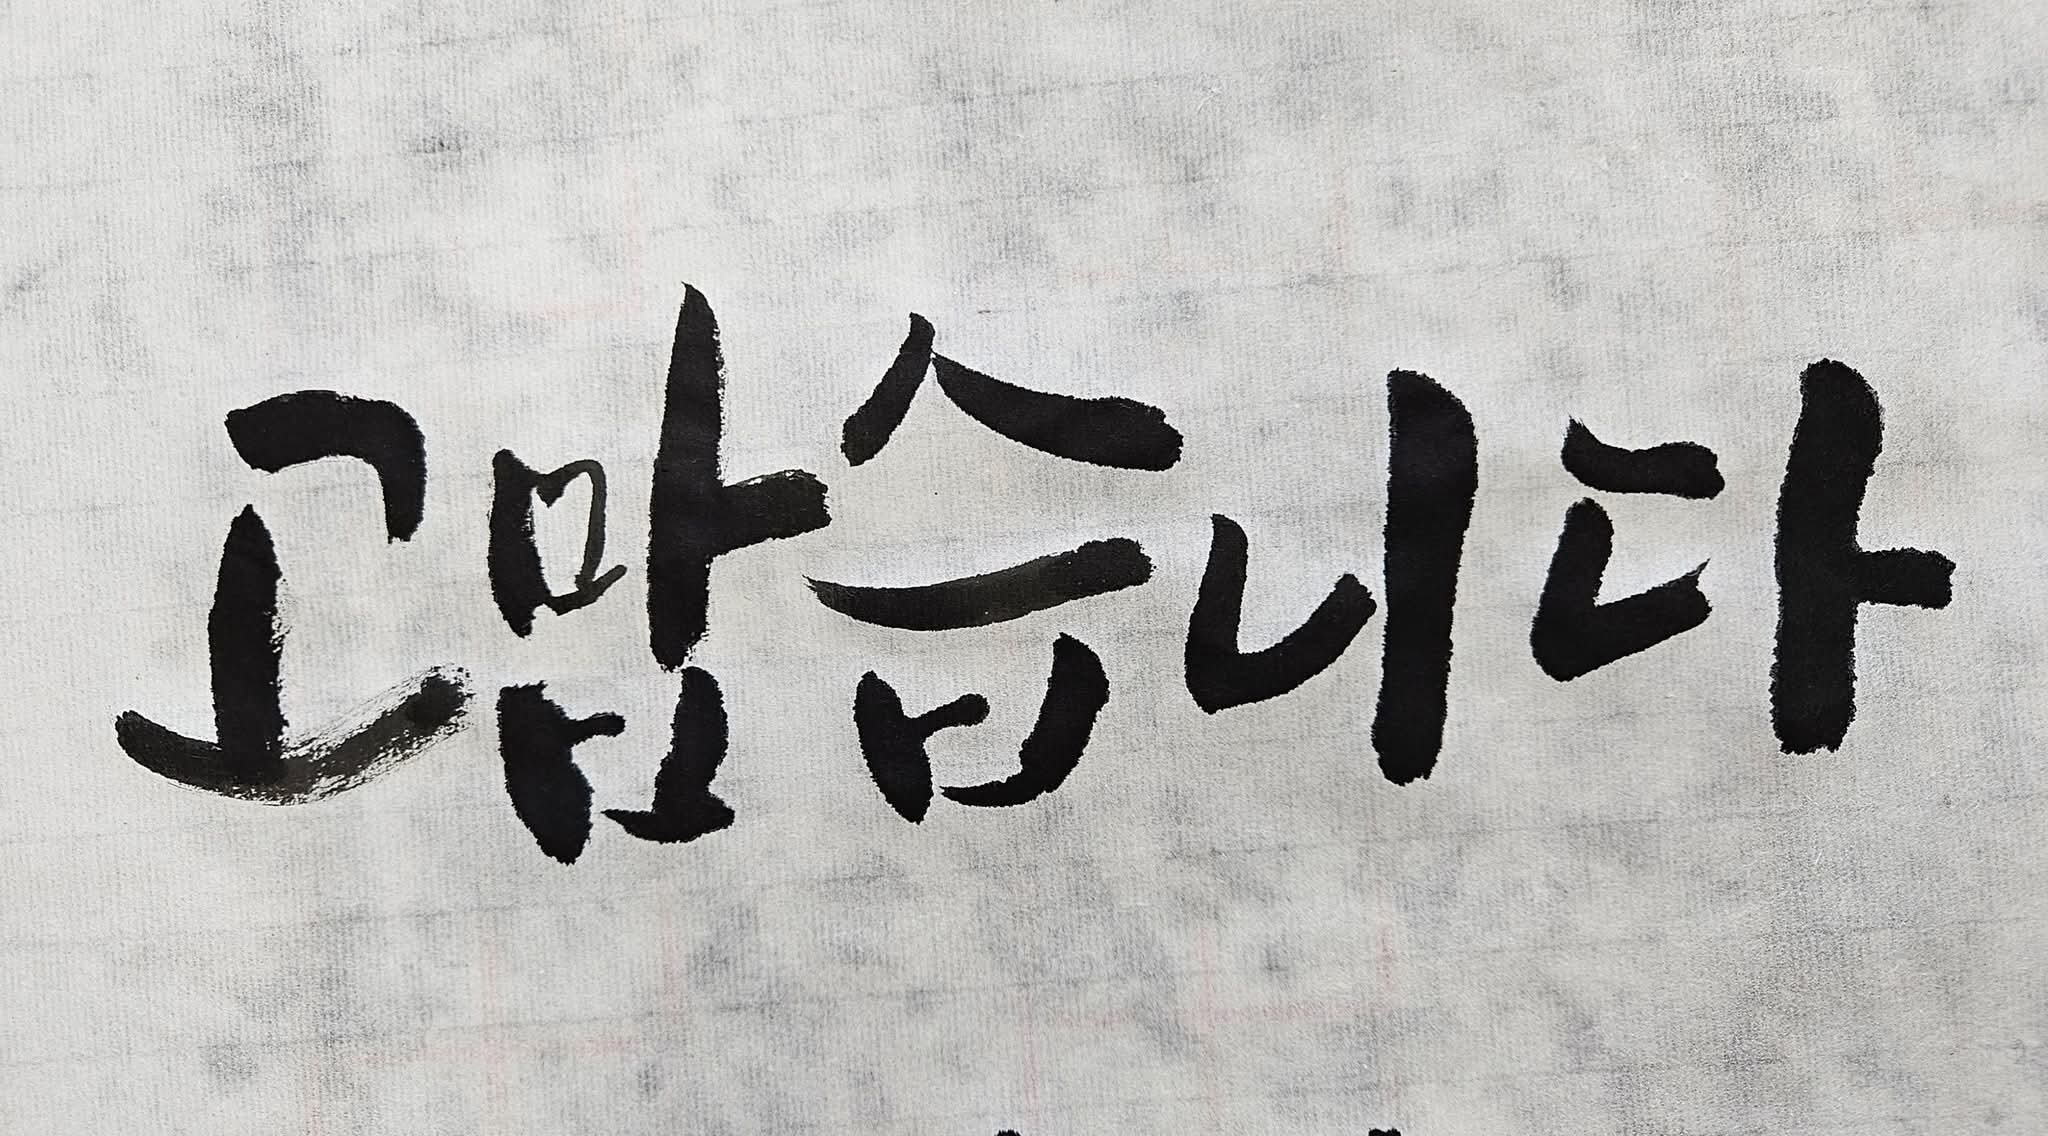 고맙습니다